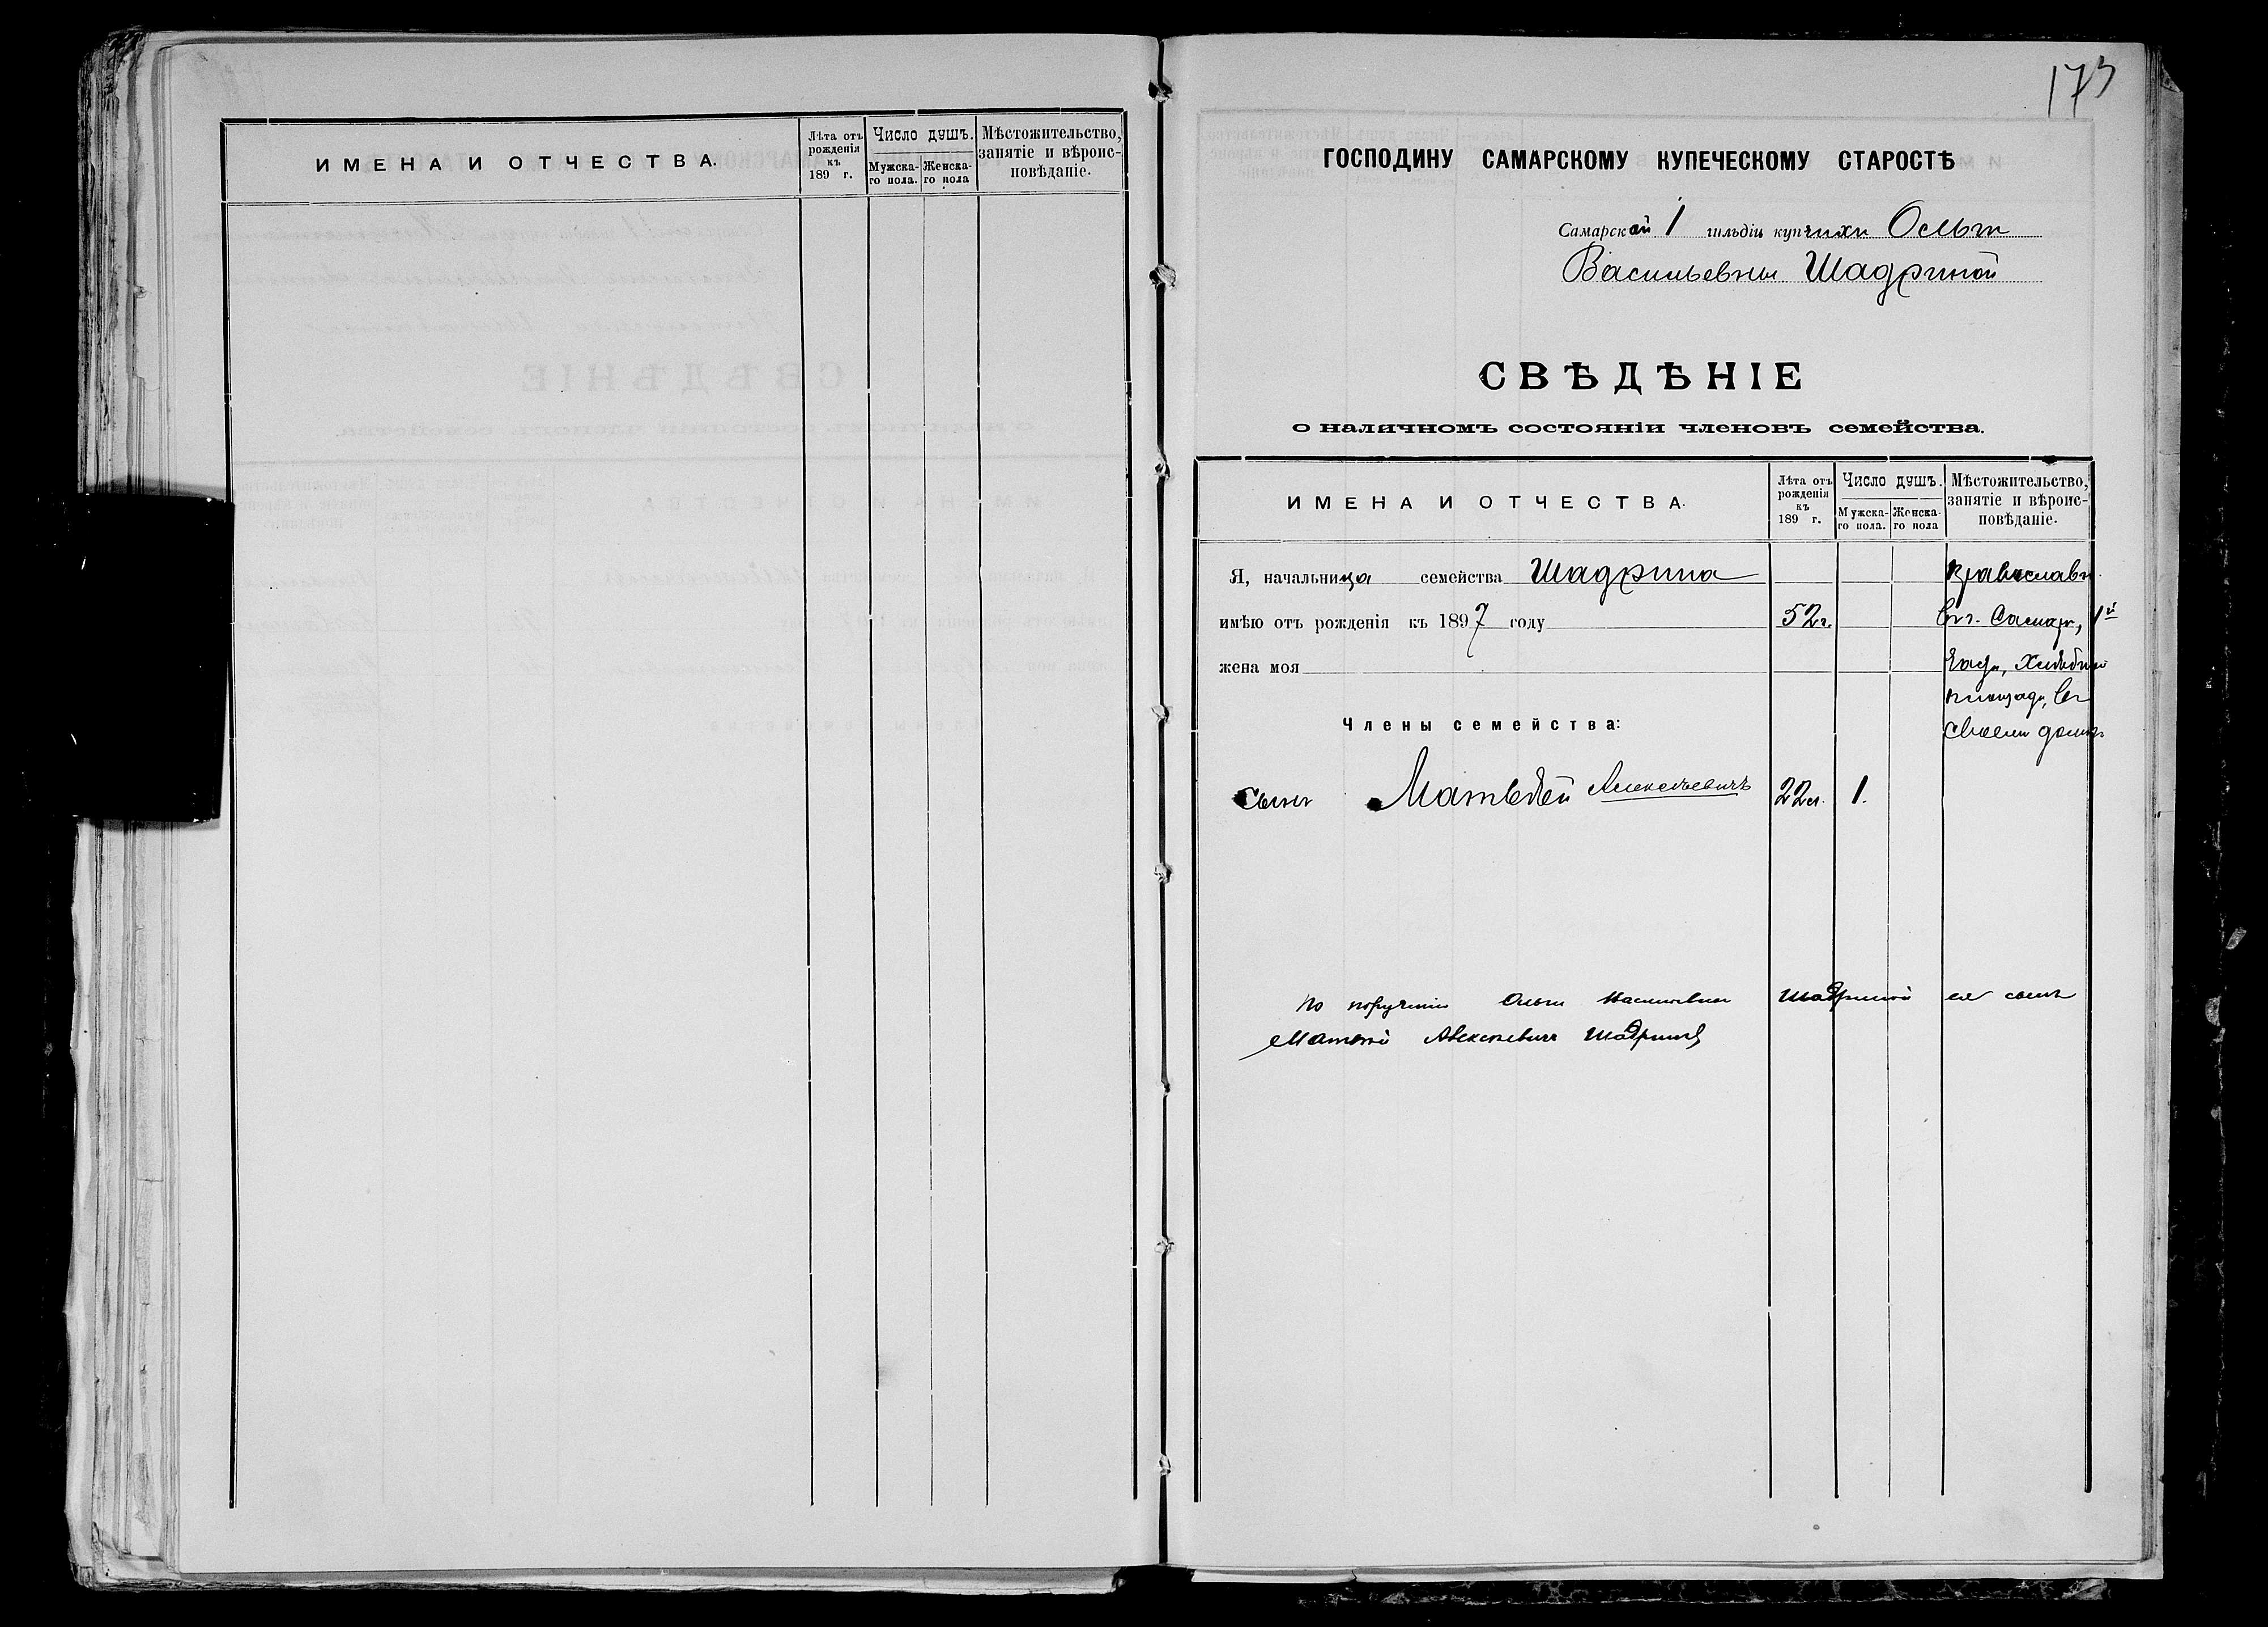 ИМЕНА И ОТЧЕСТВА.
Лѣта отъ рожденія къ 189 г.
Число душъ.
Мужска-го пола.
Женска-го пола
Мѣстожительство, занятіе и вѣроис-повѣданіе.
173
ГОСПОДИНУ САМАРСКОМУ КУПЕЧЕСКОМУ СТАРОСТѢ
Самарской 1 гильдіи купчихи Ольги
Васильевны Шадриной
СВѢДѢНІЕ
о наличномъ состояніи членовъ семейства.
ИМЕНА И ОТЧЕСТВА.
Лѣта отъ рожденія къ 189 г.
Число душъ.
Мужска-го пола.
Женска-го пола
Мѣстожительство, занятіе и вѣроис-повѣданіе.
Я, начальница семейства Шадрина православн.
имѣю отъ рожденія къ 1897 году 52 г. въ г. Самарѣ, 1й
жена моя части, Хлѣбной
площади, въ
Члены семейства: своемъ домѣ
Сынъ Матвѣй Алексѣевичъ 22 л. 1.
по порученію Ольги Васильевны Шадриной ея сынъ
Матвѣй Алексѣевичъ Шадринъ